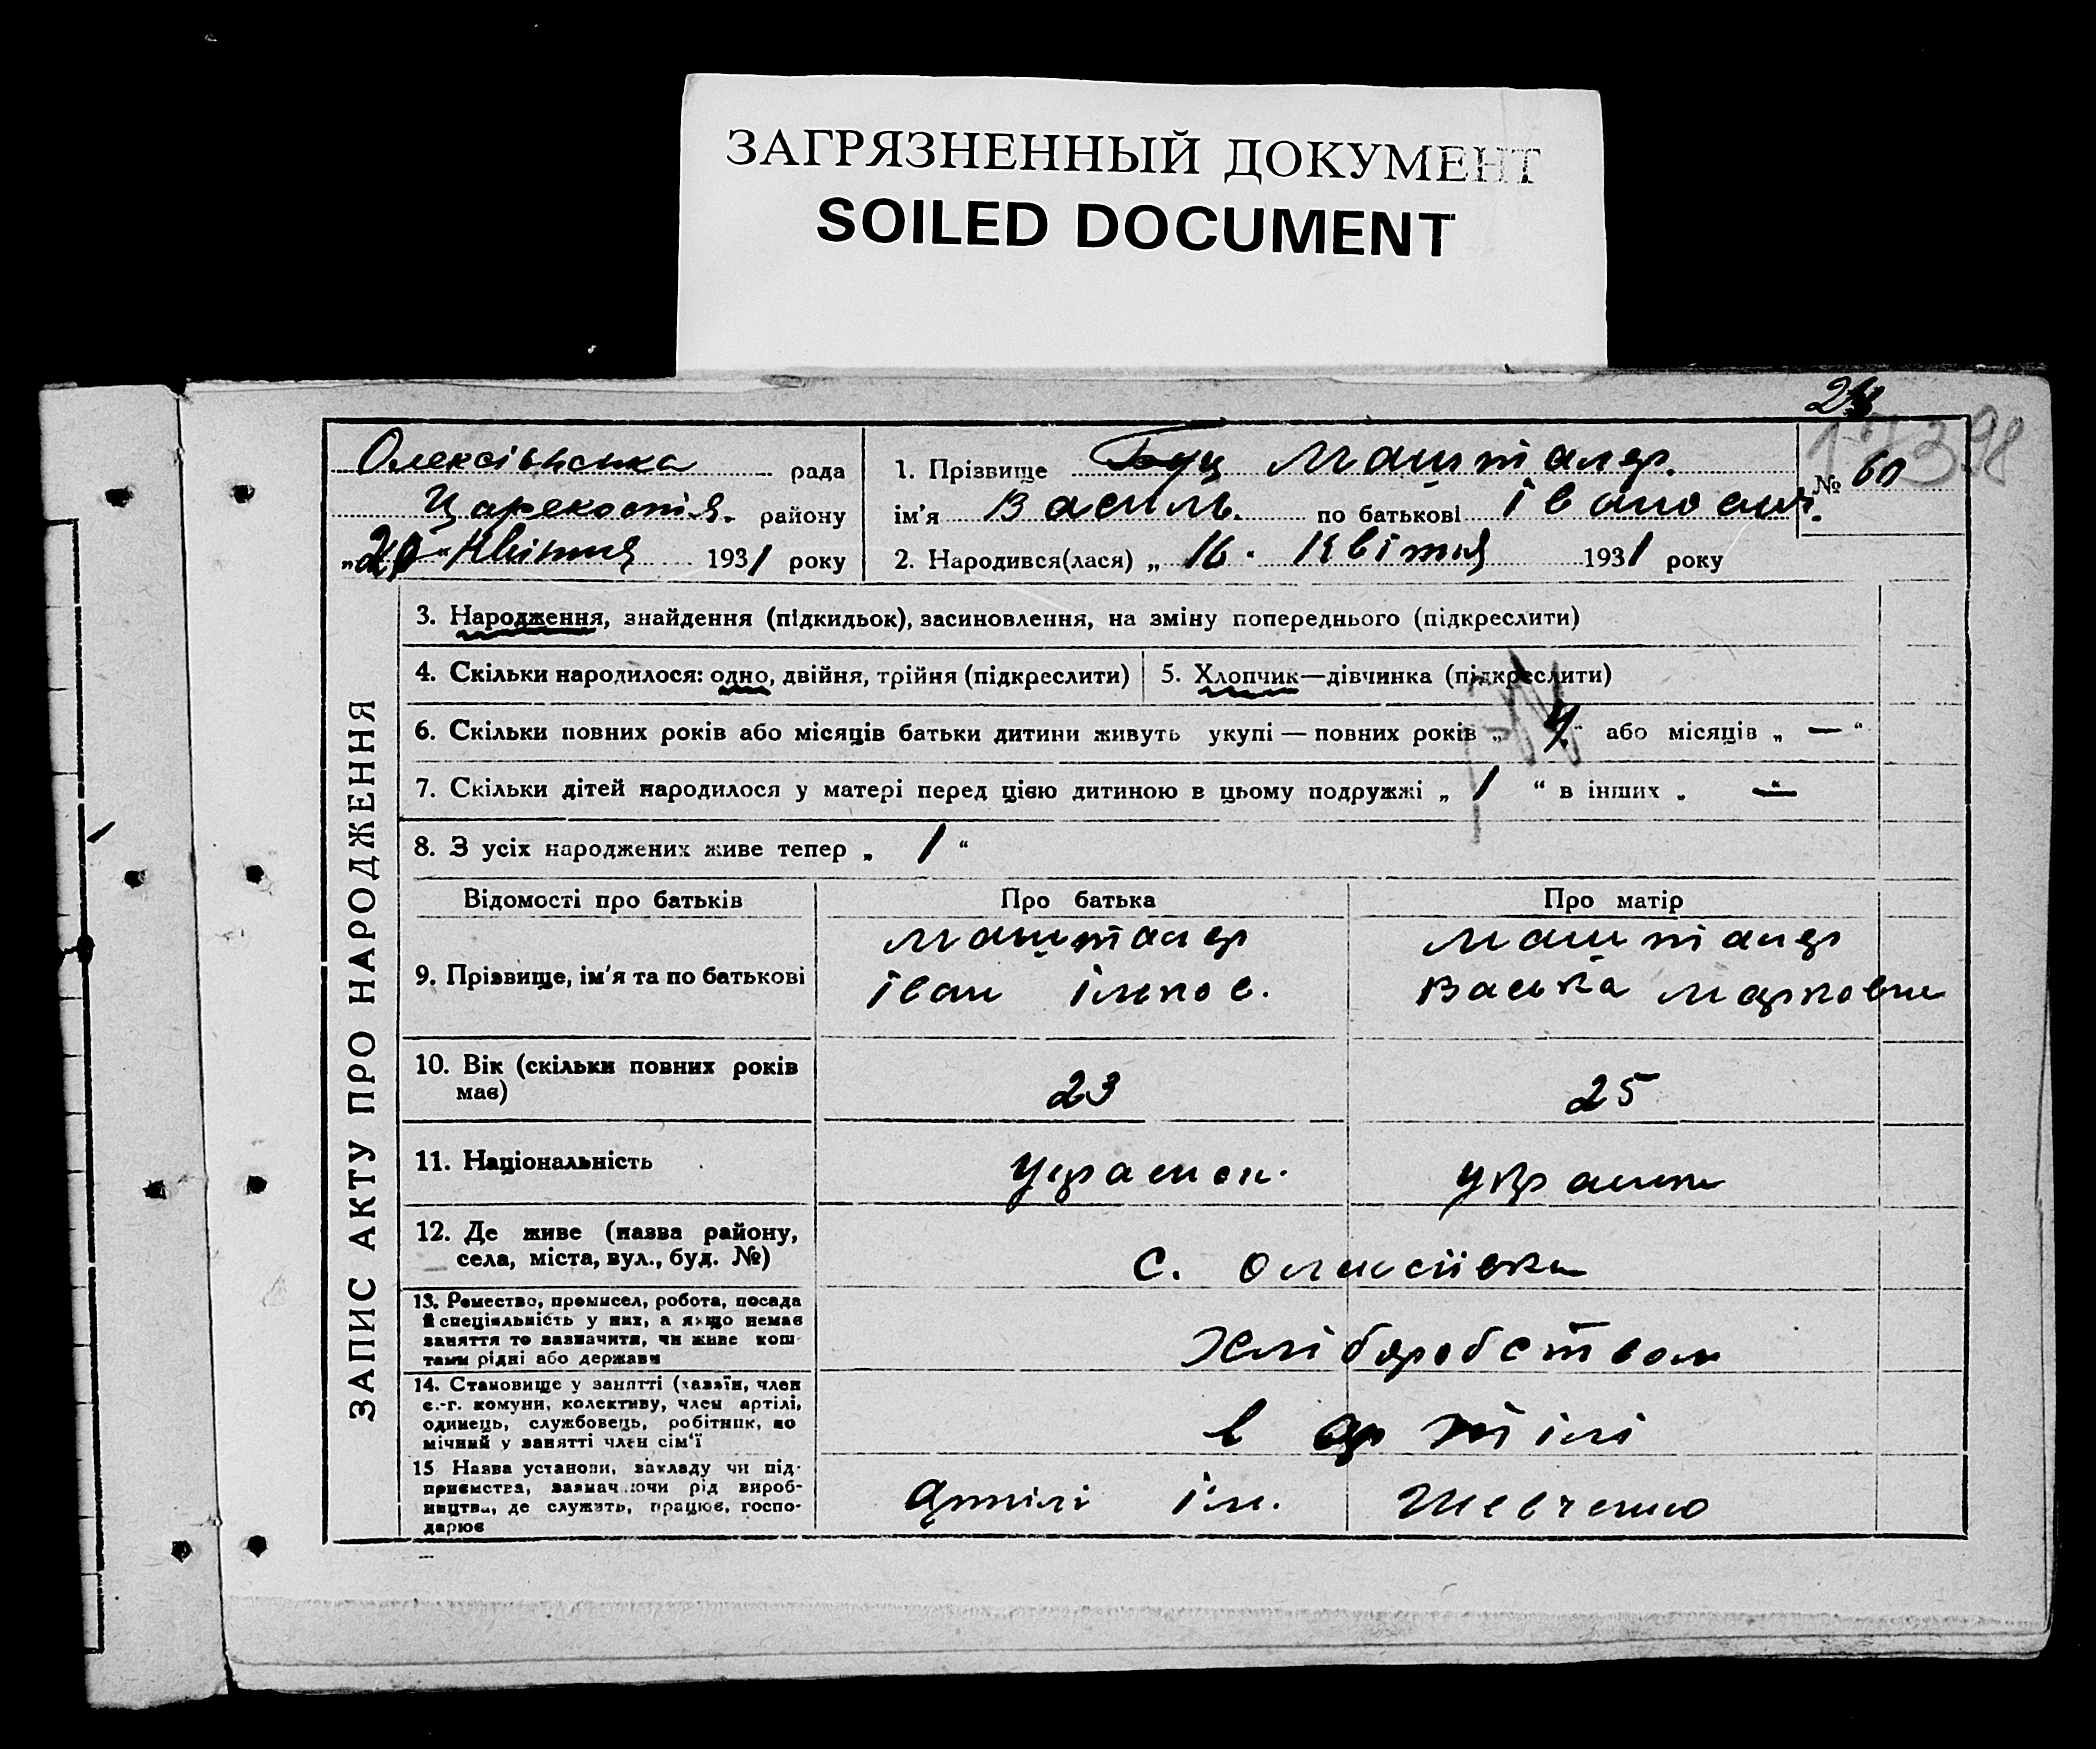 ЗАГРЯЗНЕННЫЙ ДОКУМЕНТ
SOILED DOCUMENT
Олексіївська рада
Царекостя. району
Квітня 1931 року
1. Прізвище Буц Машталяр.
ім’я Василь. по батькові Іванович.
№ 60
2. Народився(лася) „ 16. Квітня 1931 року
ЗАПИС АКТУ ПРО НАРОДЖЕННЯ
3. Народження, знайдення (підкидьок), засиновлення, на зміну попереднього (підкреслити)
4. Скільки народилося: одно, двійня, трійня (підкреслити)
5. Хлопчик—дівчинка (підкреслити)
6. Скільки повних років або місяців батьки дитини живуть укупі — повних років „ 4 “ або місяців „ — “
7. Скільки дітей народилося у матері перед цією дитиною в цьому подружжі „ 1 “ в інших „ — “
8. З усіх народжених живе тепер „ 1 “
Відомості про батьків Про батька Про матір
9. Прізвище, ім’я та по батькові
Машталяр
Іван Ільков.
Машталяр
Васька Марковна
10. Вік (скільки повних років
має)
23 25
11. Національність Украінец. Украінк
12. Де живе (назва району,
села, міста, вул., буд. №)
с. Олексіївка
13. Ремество, промисел, робота, посада
й спеціяльність у них, а якщо немає
заняття то зазначити, чи живе кош-
тами рідні або держави
Хліборобством
14. Становище у занятті (хазяїн, член
с.-г. комуни, колективу, член артілі,
одинець, службовець, робітник, по
мічний у занятті член сім‘ї
в артілі
15 Назва установи, закладу чи під-
приємства, зазначаючи рід вироб-
ництва, де служить, працює, госпо-
дарює
Артілі ім. Шевченко